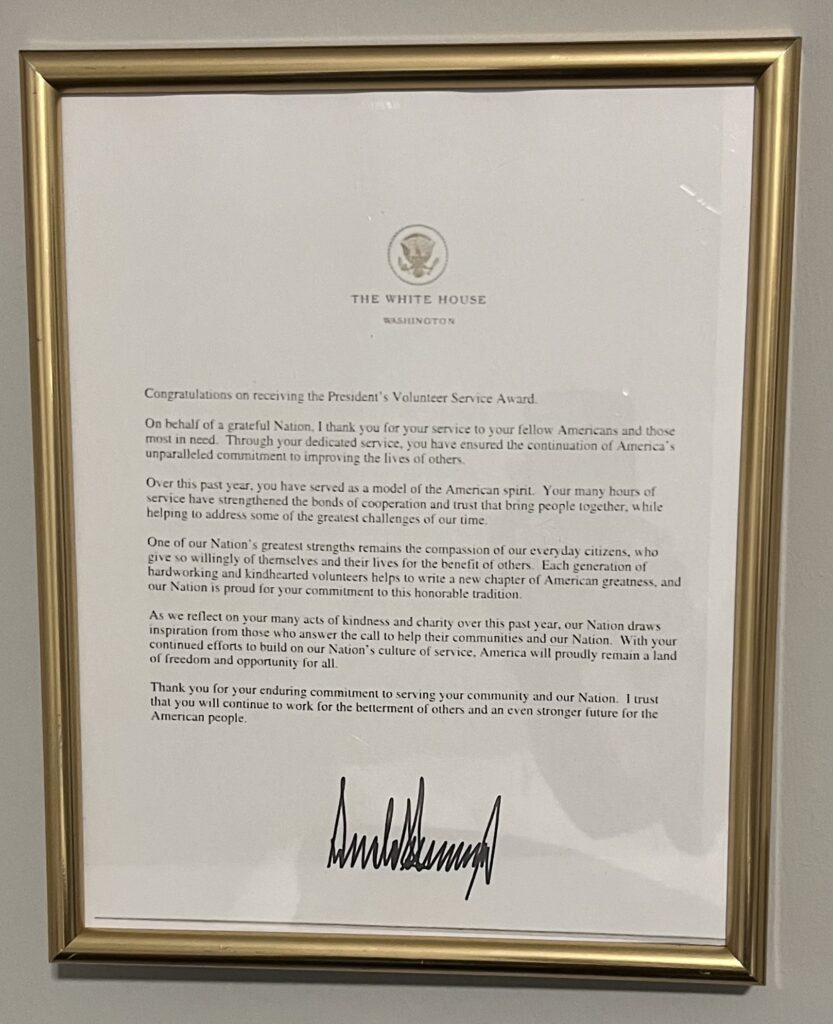 THE WHITE HOUSE
WASHINGTON
Congratulations on receiving the President's Volunteer Service Award.
On behalf of a grateful Nation, I thank you for your service to your fellow Americans and those
most in need. Through your dedicated service, you have ensured the continuation of America's
unparalleled commitment to improving the lives of others.
Over this past year, you have served as a model of the American spirit. Your many hours of
service have strengthened the bonds of cooperation and trust that bring people together, while
helping to address some of the greatest challenges of our time.
One of our Nation's greatest strengths remains the compassion of our everyday citizens, who
give so willingly of themselves and their lives for the benefit of others. Each generation of
hardworking and kindhearted volunteers helps to write a new chapter of American greatness, and
our Nation is proud for your commitment to this honorable tradition.
As we reflect on your many acts of kindness and charity over this past year, our Nation draws
inspiration from those who answer the call to help their communities and our Nation. With your
continued efforts to build on our Nation's culture of service, America will proudly remain a land
of freedom and opportunity for all.
Thank you for your enduring commitment to serving your community and our Nation. I trust
that you will continue to work for the betterment of others and an even stronger future for the
American people.